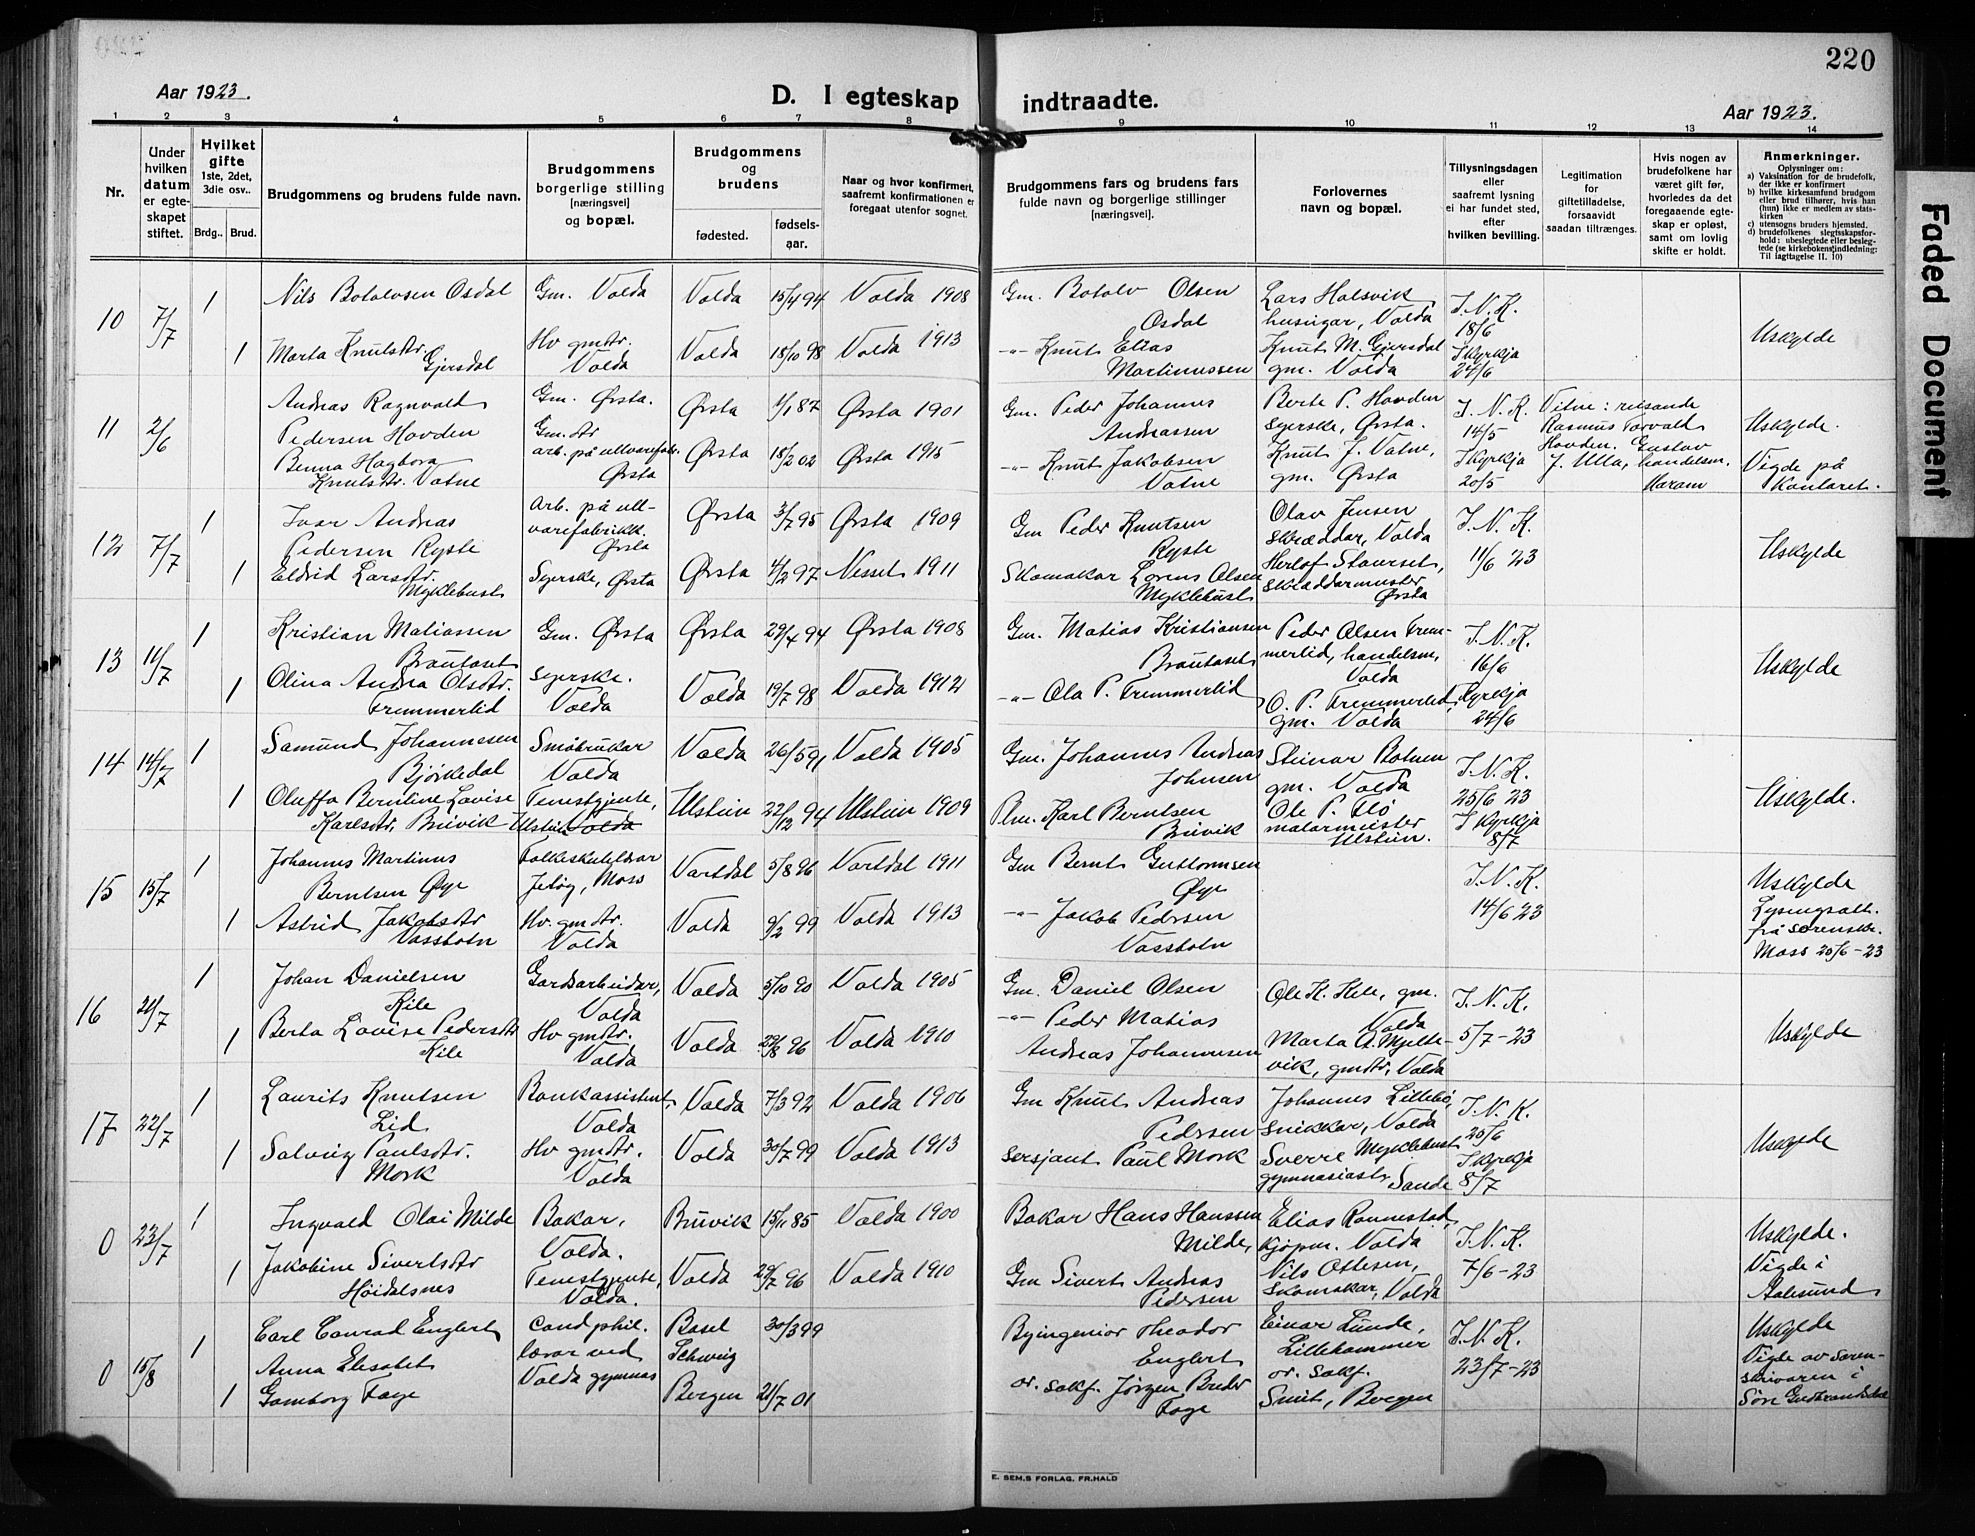 220
Aar 1923.
D. I egteskap indtraadte.
Aar 1923.
1 2 3 4 5 6 7 8 9 10 11 12 13 14
Nr.
Under hvilken datum er egteskapet stiftet.
Hvilket gifte 1ste, 2det, 3die osv..
Brdg.. Brud.
Brudgommens og brudens fulde navn.
Brudgommens borgerlige stilling [næringsvei] og bopæl.
Brudgommens og brudens
fødested.
fødsels-aar.
Naar og hvor konfirmert, saafremt konfirmationen er foregaat utenfor sognet.
Brudgommens fars og brudens fars fulde navn og borgerlige stillinger [næringsvei].
Forlovernes navn og bopæl.
Tillysningsdagen eller saafremt lysning ei har fundet sted, efter hvilken bevilling.
Legitimation for giftetilladelse, forsaavidt saadan tiltrænges.
Hvis nogen av brudefolkene har været gift før, hvorledes da det foregaaende egteskap er opløst, samt om lovlig skifte er holdt.
Anmerkninger.
Oplysninger om:
a) Vaksination for de brudefolk, der ikke er konfirmert
b) hvilke kirkesamfund brudgom eller brud tilhører, hvis han (hun) ikke er medlem av statskirken
c) utensogns bruders hjemsted.
d) brudefolkenes slegtsskapsforhold: ubeslegtede eller beslegtede (se kirkebokens indledning: Til iagttagelse II. 10)
10 7/7 1 Nils Botolvsen Osdal Gm. Volda Volda 15/4 94 Volda 1908 Gm. Botolv Olsen Osdal Lars Halsvik huseigar, Volda I.N.K. 18/6
1 Marta Knutsdtr. Gjersdal Hv gmdtr. Volda Volda 18/10 98 Volda 1913 -"- Knut Elias Martinussen Knut M. Gjersdal gm. Volda I kyrkja 24/6 Uskylde
11 2/6 Andreas Ragnvald Pedersen Hovden Gm. Ørsta. Ørsta 1/1 87 Ørsta 1901 Gm. Peder Johannes Andreassen Berte P. Hovden syerske, Ørsta. I.N.K. 14/5 Vitne: reisande Rasmus Torvald Hovden. Gustav J. Ulla, handelsm. Haram Uskylde.
Benna Hagbora Knutsdtr. Vatne Gm.dtr arb. på ullvarefabr. Ørsta Ørsta 18/2 02 Ørsta 1915 -"- Knut Jakobsen Vatne Knut J. Vatne, gm. Ørsta I kyrkja 20/5 Vigde på kontoret.
12 7/7 1 Ivar Andreas Pedersen Ryste Arb. på ullvarefabrikk. Ørsta Ørsta 3/7 95 Ørsta 1909 Gm Peder Knutsen Ryste Olav Jensen skræddar, Volda I.N.K. 11/6 23 Uskylde
1 Eldrid Larsdtr. Myklebust Syerske, Ørsta Ørsta 4/2 97 Nesset 1911 Skomakar Lorens Olsen Myklebust Herlof Staurset, skræddarmeister Ørsta
13 11/7 1 Kristian Matiassen Brautaset Gm. Ørsta Ørsta 29/4 94 Ørsta 1908 Gm. Matias Kristiansen Brautaset Peder Olsen Tremmerlid, handelsm, Volda I.N.K. 16/6 Uskylde
1 Olina Andrea Olsdtr. Fremmerlid Syerske. Volda Volda 19/7 98 Volda 1912 -"- Ola P. Fremmerlid O. P. Fremmerlid, gm. Volda I kyrkja 24/6
14 14/7 1 Samund Johannesen Bjørkedal Småbrukar Volda Volda 26/5 91 Volda 1905 Gm. Johannes Andreas Johnsen Steinar Botnen gm. Volda I.N.K. 25/6 23 Uskylde.
1 Oluffa Berntine Lovise Karlsdtr, Brüvik Tenestgjente, Ulstein Volda Ulstein 22/12 94 Ulstein 1909 Plm. Karl Berntsen Brüvik Ole P. Flø malarmeister Ulstein. I kyrkja 8/7
15 15/7 1 Johannes Martinus Berntsen Øye Folkeskulelærar Jeløy, Moss Vartdal 5/8 96 Vartdal 1911 Gm Bernt Guttormsen Øye I.N.K. 14/6 23 Uskylde
1 Astrid Jakobsdtr Vassbotn Hv. gmdtr. Volda Volda 9/2 99 Volda 1913 -"- Jakob Pedersen Vassbotn Lysingsatt. frå sorenskr. Moss 25/6-23
16 21/7 1 Johan Danielsen Kile Gardsarbeidar, Volda Volda 5/10 90 Volda 1905 Gm. Daniel Olsen Ole K. Kile, gm. Volda I.N.K. 5/7-23 Uskylde
1 Berta Lovise Pedersdtr Kile Hv gmdtr. Volda Volda 29/8 96 Volda 1910 -"- Peder Matias Andreas Johannesen Marta A. Mjeltevik, gmdtr, Volda
17 22/7 1 Laurits Knutsen Lid Bankassistent, Volda Volda 7/3 92 Volda 1906 Gm Knut Andreas Pedersen Johannes Lillebø, snikkar, Volda I.N.K. 25/6 Uskylde
1 Solveig Paulsdtr. Mork Hv gmdtr. Volda Volda 30/7 99 Volda 1913 Sersjant Paul Mork Sverre Myklebust gymnasiast, Sande I kyrkja 8/7
0 23/7 1 Ingvald Olai Milde Bakar, Volda. Brüvik 15/11 85 Volda 1900 Bakar Hans Hanssen Milde, Elias Rønnestad, kjøpm. Volda I.N.K. 7/6-23 Uskylde.
1 Jakobine Sivertsdtr Høidalsnes Tenestgjente, Volda. Volda 29/7 96 Volda 1910 Gm Sivert Andreas Pedersen Nils Ottesen, skomakar, Volda Vigde i Aalesund
0 15/8 1 Carl Conrad Englert Cand phil. lærar ved Volda gymnas Basel Schweiz 30/3 99 Byingeniør Theodor Englert Einar Lunde, Lillehammer or. sakf. I.N.K. 23/7-23 Uskylde
1 Anna Elisabet Gamborg Faye Bergen 21/7 01 or. sakf. Jørgen Breder Faye Smit, Bergen Vigde av sorenskrivaren i Søre Gudbrandsdal
E. SEM.S FORLAG, FR.HALD
Faded Document